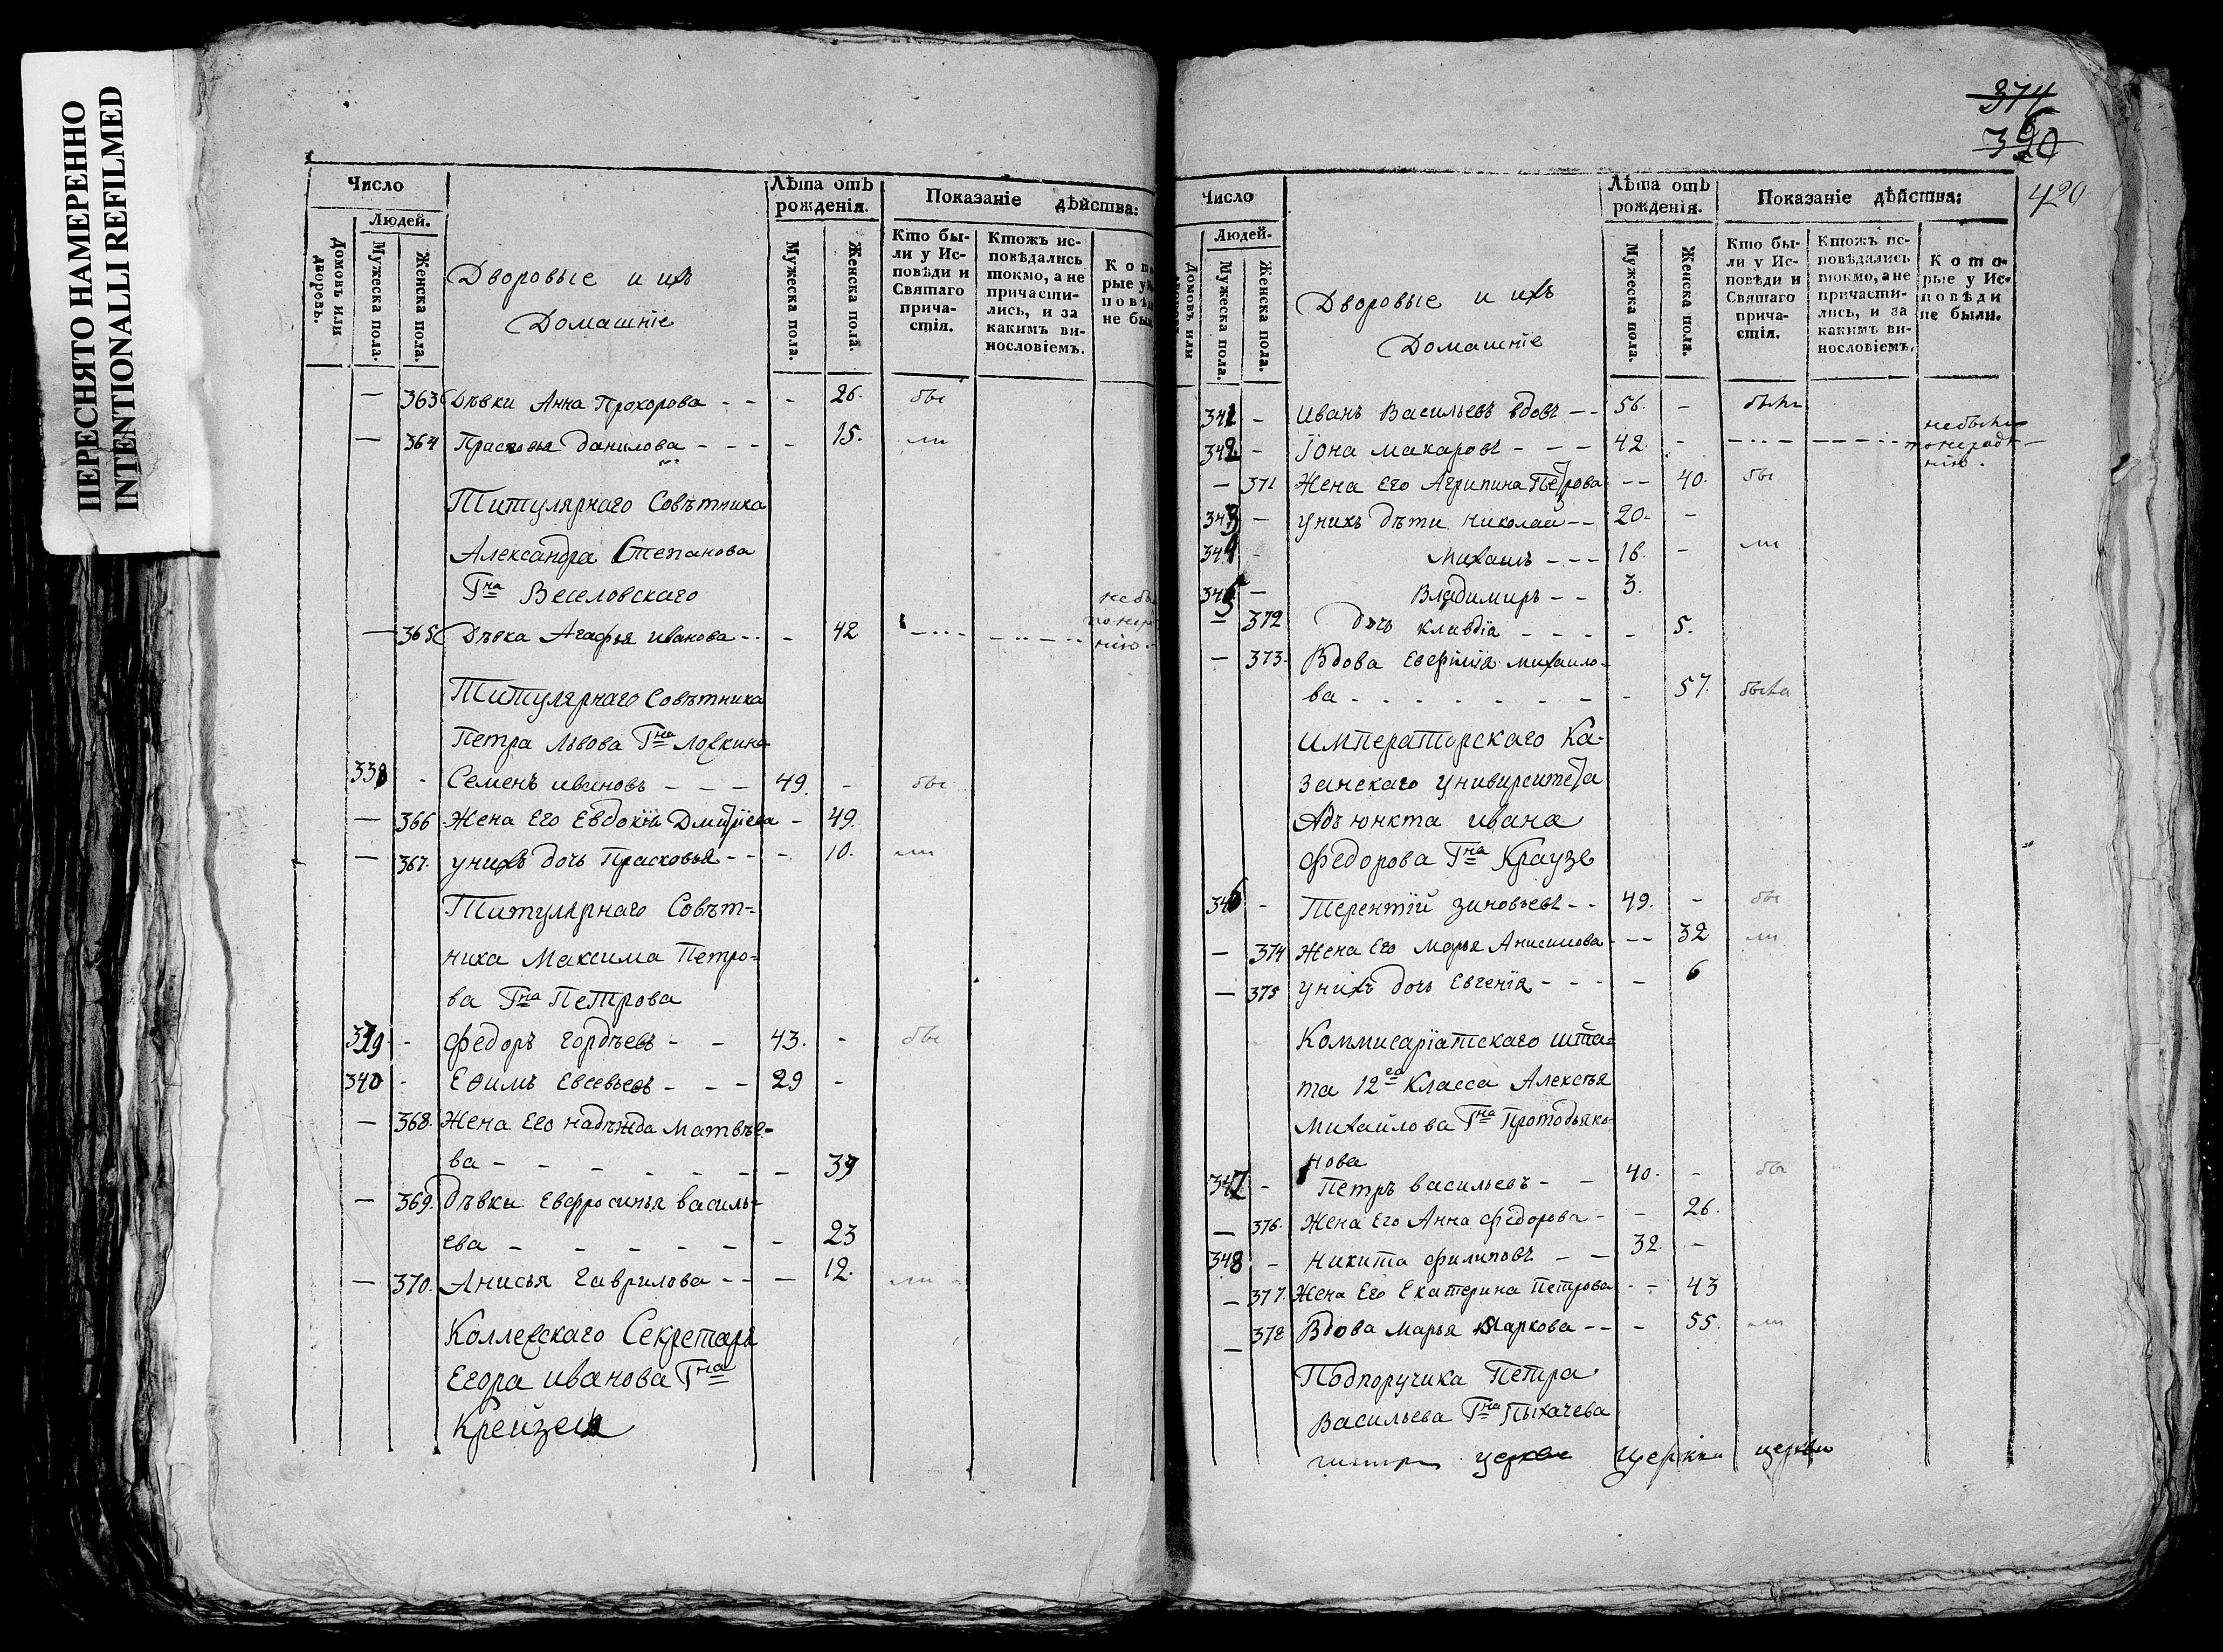 ПЕРЕСНЯТО НАМЕРЕННО
INTENTIONALLI REFILMED
Число
Людей.
Домовъ или дворовъ.
Мужеска пола.
Женска пола.
Дворовые и ихъ
Домашніе
Лѣта отъ рожденія.
Мужеска пола.
Женска пола.
Показаніе дѣйства:
Кто были у Исповѣди и Святаго причастія.
Ктожъ исповѣдались токмо, а не причастились, и за какимъ винословіемъ.
— 363 Дѣвки Анна Прохорова - - - 26. бы
— 364 Прасковья Данилова - - - - 15. ли
Титулярнаго Совѣтника
Александра Степанова
Гна Веселовскаго
— 365 Дѣвка Агафья Иванова - - - 42
Титулярнаго Совѣтника
Петра Львова Гна
338 - Семенъ Ивановъ - - - 49. - бы
— 366 Жена Его Евдокія Дмитріева - 49.
— 367. унихъ дочь Прасковья - - - 10. ли
Титулярнаго Совѣт=
ника Максима Петро=
ва Гна Петрова
339 - Федоръ Гордѣевъ - - 43. - бы
340 - Ефимъ Евсевьевъ - - - 29 -
— 368. Жена Его Надѣжда Матвѣе=
ва - - - - - - - 39
— 369. Дѣвки Евфросинья Василь=
ева - - - - - - 23
— 370. Анисья Гаврилова - - — 12. ли
Коллежскаго Секретаря
Егора Иванова Гна
374
390
420
Число
Людей.
Домовъ или
Мужеска пола.
Женска пола.
Дворовые и ихъ
Домашніе
Лѣта отъ рожденія.
Мужеска пола.
Женска пола.
Показаніе дѣйства:
Кто были у Исповѣди и Святаго причастія.
Ктожъ исповѣдались токмо, а не причастились, и за какимъ винословіемъ.
Которые у Исповѣди не были.
341 - Иванъ Васильевъ вдовъ - - 56. - былъ
342 - Іона Макаровъ - - - 42. - небылъ понерадѣнію.
— 371 Жена Его Агрипина Петрова - - 40. бы
343 - унихъ дѣти Николай - - 20. -
344 - Михаилъ - - - 16. - ли
345 - Владимиръ - - 3.
— 372 дчь Клавдіа - - - - 5.
— 373. Вдова Евфимія Михаило-
ва - - - - - - - - 57. была
Императорскаго Ка-
занскаго Университета
Адъюнкта Ивана
Федорова Гна Краузе
346 - Терентій Зиновьевъ - - 49. - бы
— 374 Жена Его Марья Анисимова - - - 32 ли
— 375 унихъ дочь Евгенія - - - - 6
Коммисаріатскаго шта=
та 12го Класса Алексѣя
Михайлова Гна Протодьяко-
нова
347 - Петръ Васильевъ - - 40. - бы
— 376. Жена Его Анна Федорова - - 26.
348 - Никита Филиповъ - - 32. -
— 377. Жена Его Екатерина Петрова - - 43
— 378 Вдова Марья Маркова - - - 55. ли
Подпоручика Петра
Васильева Гна Пыхачева
церкви церкви церкви